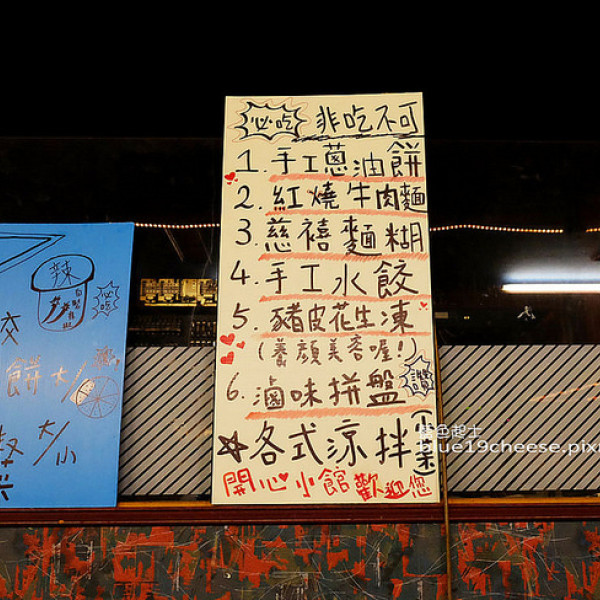 必吃 非吃不可
1. 手工蔥油餅
2. 紅燒牛肉麵
3. 慈禧麵糊
4. 手工水餃
5. 豬皮花生凍
(養顏美容喔!)
讚
6. 滷味拼盤
各式涼拌(小菜)
開心小館歡迎您
辣
必吃
餅 大/小
大/小
藍色起士
blue19cheese.pix